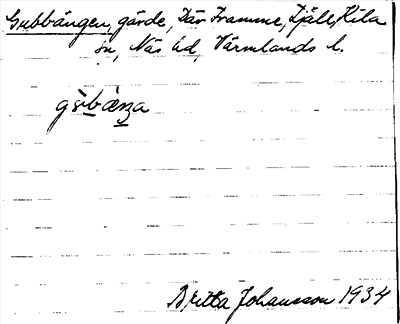 Gubbängen, gärde, Där Framme, Fjäll, Kila
sn, Näs hd, Värmlands l.
Britta Johansson 1934